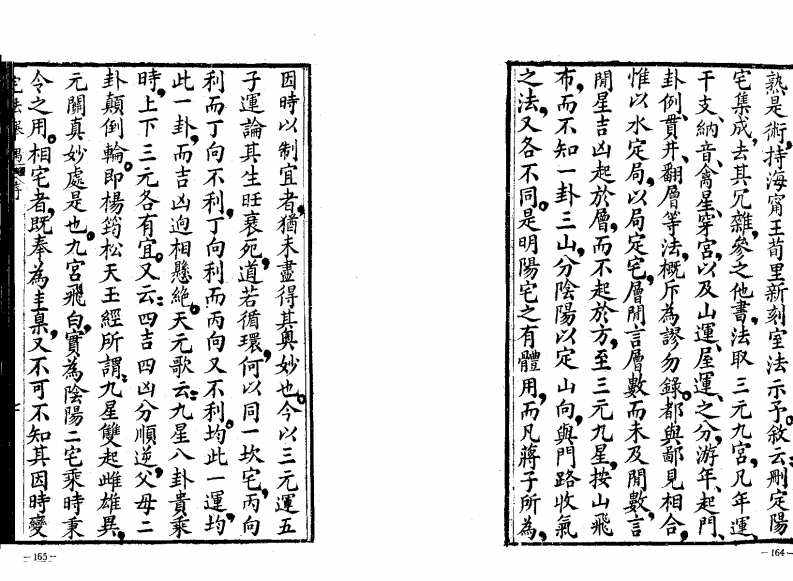 熟是術，持海甯王荀里新刻室法示予。敘云：刪定陽
宅集成，去其冗雜，參之他書，法取三元九宮，凡年運、
干支、納音、禽星、穿宮，以及山運、屋運、之分，游年、起門、
卦例、貫井、翻層等法，概斥為謬勿錄。都與鄙見相合，
惟以水定局，以局定宅，層間言層數而未及間數，言
間星吉凶起於層，而不起於方，至三元九星，按山飛
布，而不知一卦三山，分陰陽以定山向，與門路收氣
之法，又各不同。是明陽宅之有體用，而凡蔣子所為，
－164－
因時以制宜者，猶未盡得其奧妙也。今以三元運五
子運論其生旺衰死，道若循環，何以同一坎宅，丙向
利而丁向不利，丁向利而丙向又不利。均此一運，均
此一卦，而吉凶迥相懸絕。天元歌云：九星八卦貴乘
時，上下三元各有宜。又云：四吉四凶分順逆，父母二
卦顛倒輪。即楊筠松天玉經所謂：九星雙起雌雄異，
元關真妙處是也。九宮飛白，實為陰陽二宅乘時秉
令之用。相宅者，既奉為圭臬，又不可不知其因時變
－165－